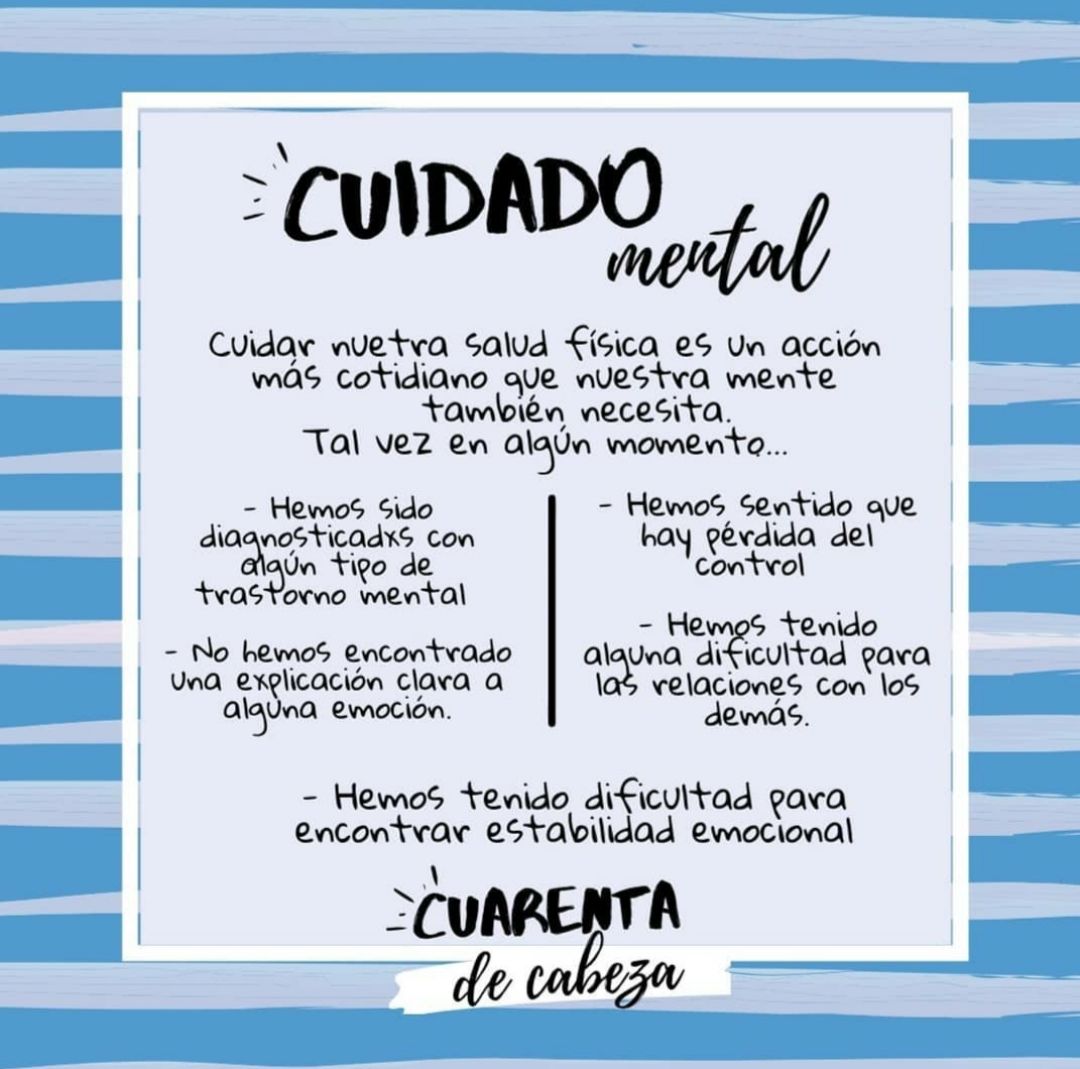 CUIDADO
mental
Cuidar nuetra salud física es un acción
más cotidiano que nuestra mente
también necesita.
Tal vez en algún momento...
- Hemos sido
diagnosticadxs con
algún tipo de
trastorno mental
- No hemos encontrado
una explicación clara a
alguna emoción.
- Hemos sentido que
hay pérdida del
control
- Hemos tenido
alguna dificultad para
las relaciones con los
demás.
- Hemos tenido dificultad para
encontrar estabilidad emocional
CUARENTA
de cabeza